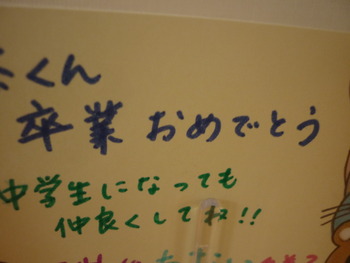 くん
卒業おめでとう
中学生になっても
仲良くしてネ!!